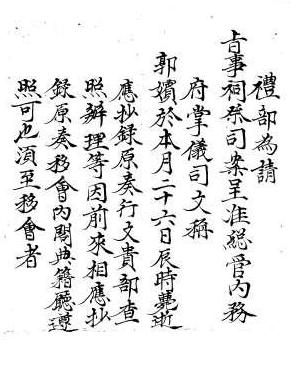 禮部為請
旨事祠祭司案呈准総管内務
府掌儀司文稱
郭嬪於本月二十六日辰時薨逝
應抄錄原奏行文貴部查
照辦理等因前來相應抄
錄原奏移會內閣典籍廳遵
照可也須至移會者